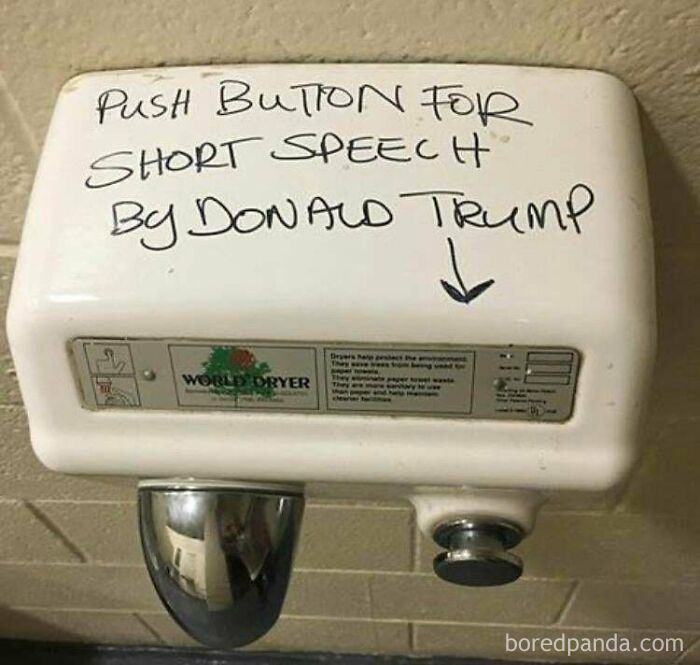 PUSH BUTTON FOR
SHORT SPEECH
By DONALD TRUMP
WORLD DRYER
Dryers help protect the environment.
They save trees from being used for
paper towels.
They eliminate paper towel waste.
They are more sanitary to use
than paper and help maintain
cleaner facilities.
boredpanda.com